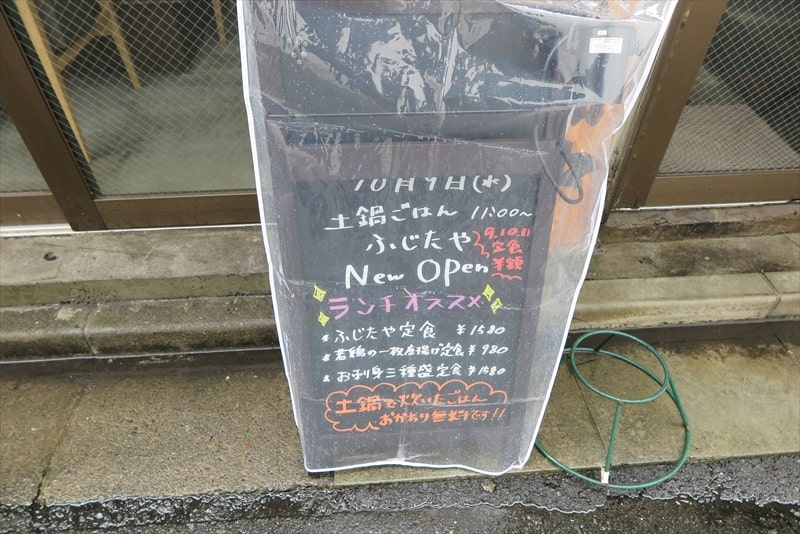 10月9日(水)
土鍋ごはん 11:00〜
ふじたや
9.10.11
定食
半額
New Open
ランチオススメ
ふじたや定食 ¥1580
若鶏の一枚唐揚げ定食 ¥980
お刺身三種盛定食 ¥1680
土鍋で炊いたごはん
おかわり無料です!!